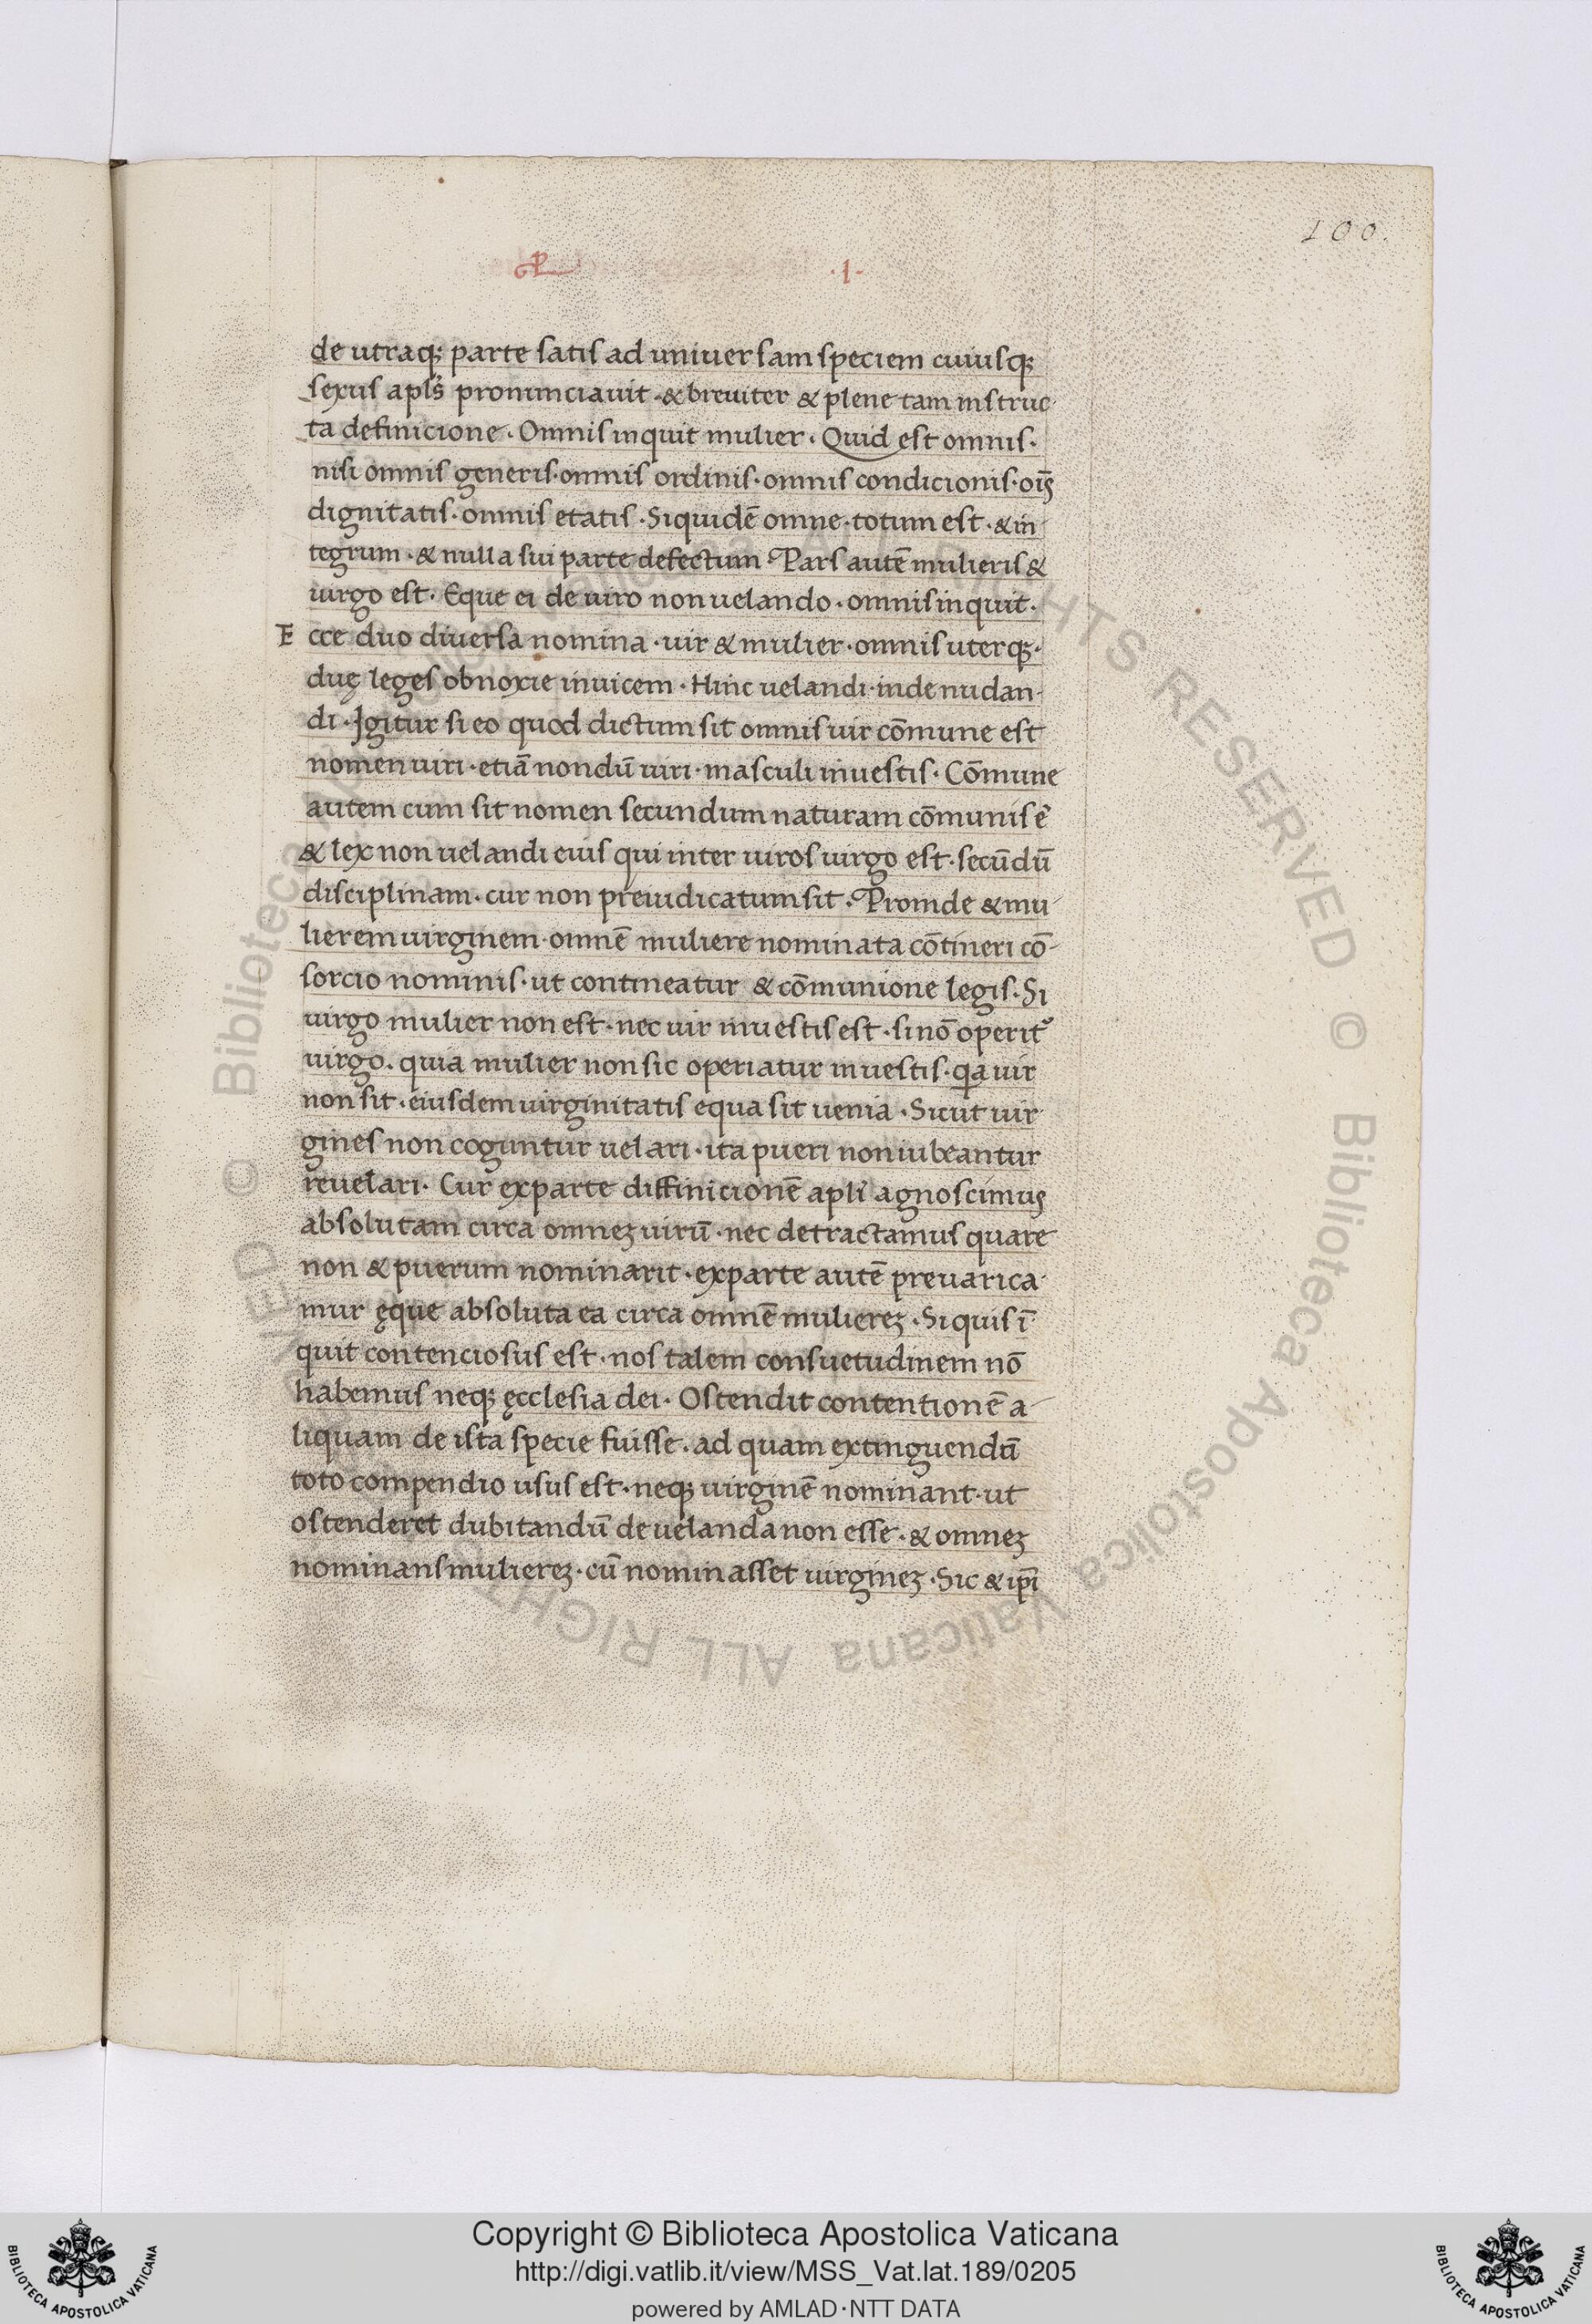 100.
·I·
de utraqꝫ parte satis ad uniuersam speciem cuiusqꝫ
sexus apl̄s pronunciauit · & breuiter & plene tam instruc
ta definicione · Omnis inquit mulier · Quid est omnis ·
nisi omnis generis · omnis ordinis · omnis condicionis · oīs
dignitatis · omnis etatis · Siquidē omne · totum est · & in
tegrum · & nulla sui parte defectum · Pars autē mulieris &
uirgo est · Eque ei de uiro non uelando · omnis inquit ·
Ecce duo diuersa nomina · uir & mulier · omnis uterqꝫ ·
duę leges obnoxie inuicem · Hinc uelandi · inde nudan-
di · Igitur si eo quod dictum sit omnis uir cōmune est
nomen uiri · etiā nondū uiri · masculi inuestis · Cōmune
autem cum sit nomen secundum naturam cōmunis ē
& lex non uelandi eius qui inter uiros uirgo est · secūdū
disciplinam · cur non preiudicatum sit · Proinde & mu
lierem uirginem · omnē muliere nominata cōtineri cō-
sorcio nominis · ut contineatur & cōmunione legis · Si
uirgo mulier non est · nec uir inuestis est · si nō operit᷒
uirgo · quia mulier non sic operiatur inuestis · qa uir
non sit · eiusdem uirginitatis equa sit uenia · Sicut uir
gines non coguntur uelari · ita pueri non iubeantur
reuelari · Cur exparte diffinicionē apl̄i agnoscimus
absolutam circa omneꝫ uirū · nec detractamus quare
non & puerum nominarit · exparte autē preuarica
mur ęque absoluta ea circa omnē muliereꝫ · Si quis ī
quit contenciosus est · nos talem consuetudinem nō
habemus neqꝫ ęcclesia dei · Ostendit contentionē a-
liquam de ista specie fuisse · ad quam extinguendū
toto compendio usus est · neqꝫ uirginē nominant · ut
ostenderet dubitandū de uelanda non esse · & omneꝫ
nominans muliereꝫ · cū nominasset uirgineꝫ · Sic & ip̄i
© Biblioteca Apostolica Vaticana ALL RIGHTS RESERVED
© Biblioteca Apostolica Vaticana ALL RIGHTS RESERVED
Copyright © Biblioteca Apostolica Vaticana
http://digi.vatlib.it/view/MSS_Vat.lat.189/0205
powered by AMLAD·NTT DATA
BIBLIOTECA APOSTOLICA VATICANA
BIBLIOTECA APOSTOLICA VATICANA